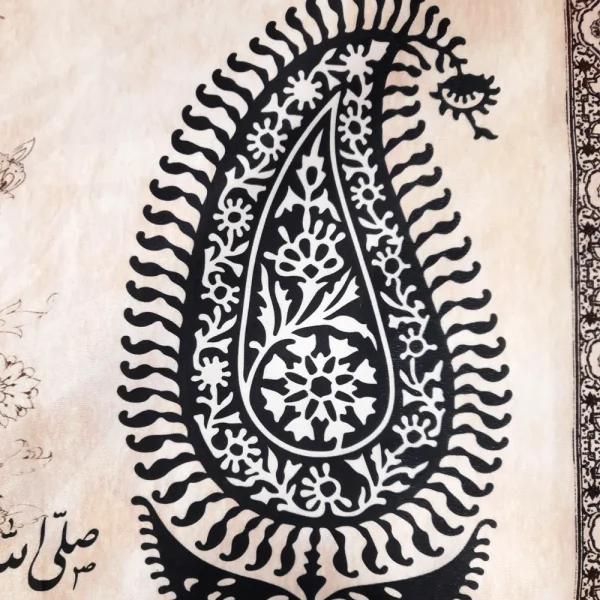 صلّی الله